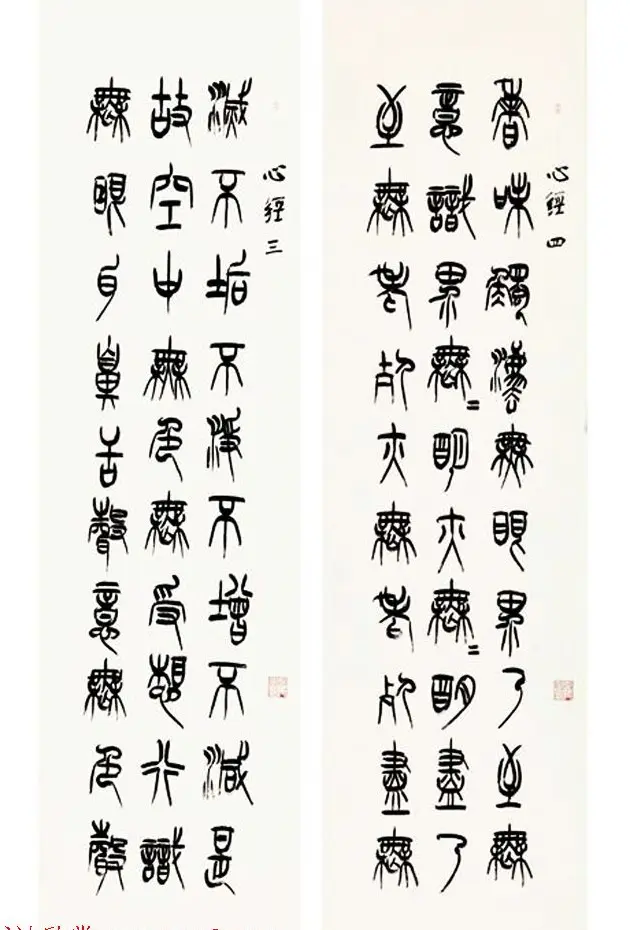 心經三
滅不垢不淨不增不減是
故空中無色無受想行識
無眼耳鼻舌聲意無色聲
心經四
香味觸灋無眼界乃至無
意識界無=明亦無=明盡乃
至無老死亦無老死盡無